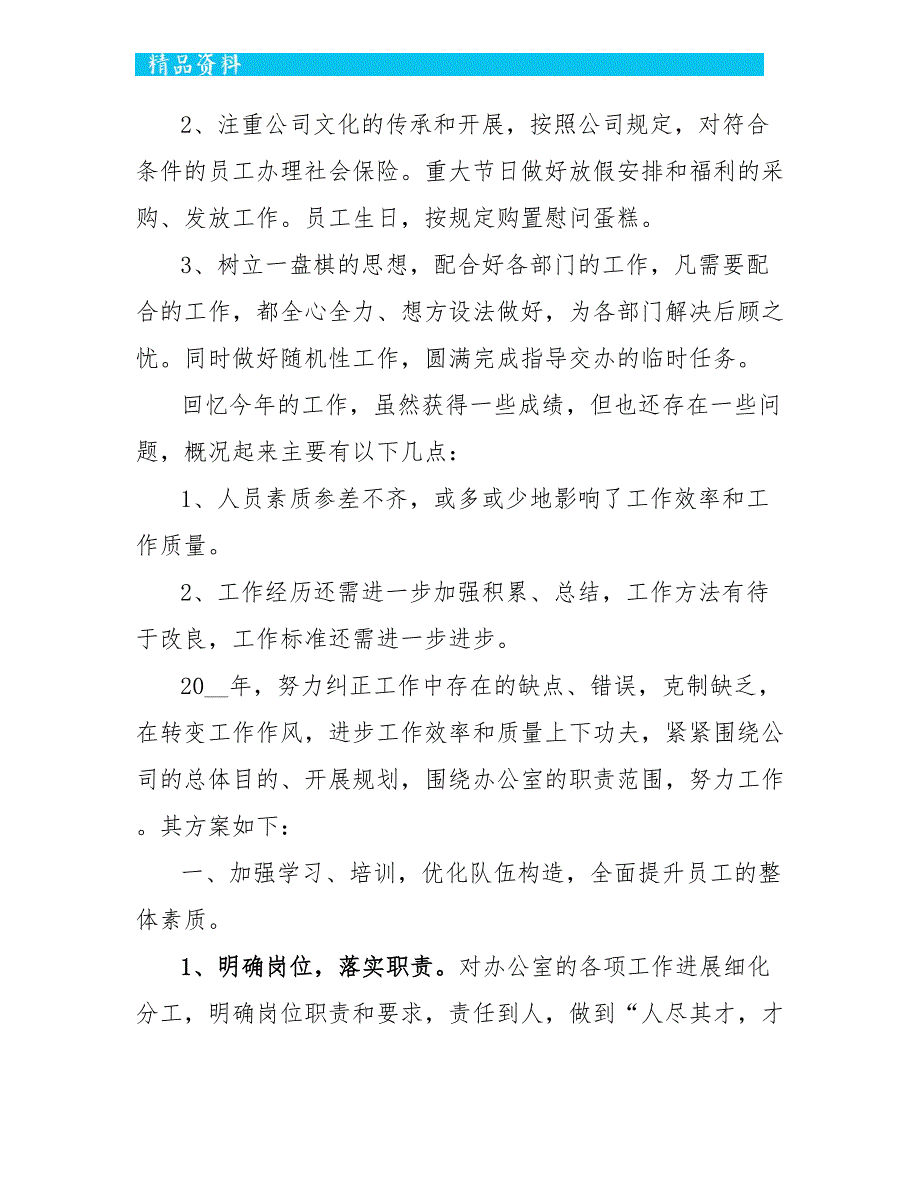 精品资料
2、注重公司文化的传承和开展，按照公司规定，对符合
条件的员工办理社会保险。重大节日做好放假安排和福利的采
购、发放工作。员工生日，按规定购置慰问蛋糕。
3、树立一盘棋的思想，配合好各部门的工作，凡需要配
合的工作，都全心全力、想方设法做好，为各部门解决后顾之
忧。同时做好随机性工作，圆满完成指导交办的临时任务。
回忆今年的工作，虽然获得一些成绩，但也还存在一些问
题，概况起来主要有以下几点：
1、人员素质参差不齐，或多或少地影响了工作效率和工
作质量。
2、工作经历还需进一步加强积累、总结，工作方法有待
于改良，工作标准还需进一步进步。
20__年，努力纠正工作中存在的缺点、错误，克制缺乏，
在转变工作作风，进步工作效率和质量上下功夫，紧紧围绕公
司的总体目的、开展规划，围绕办公室的职责范围，努力工作
。其方案如下：
一、加强学习、培训，优化队伍构造，全面提升员工的整
体素质。
1、明确岗位，落实职责。对办公室的各项工作进展细化
分工，明确岗位职责和要求，责任到人，做到“人尽其才，才